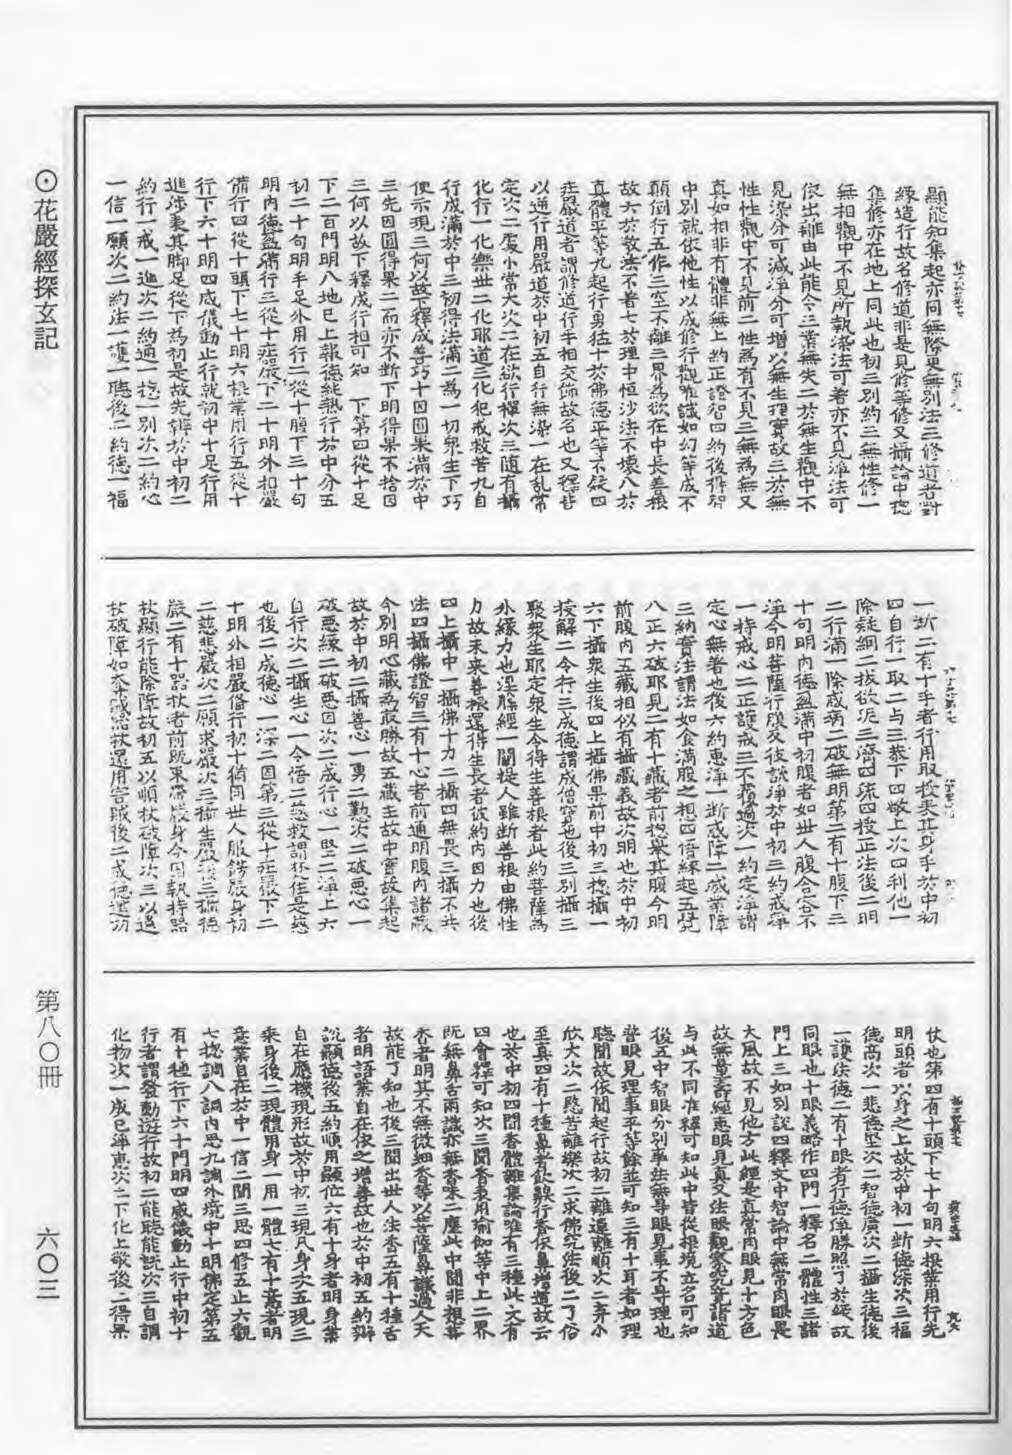 ⊙花嚴經探玄記
第八〇冊
六〇三
顯能知集起亦同無障更無別法三修道者對
緣造行故名修道非是見修等修又攝論中揔
集修亦在地上同此也初三別約三無性修一
無相觀中不見所執染法可者亦不見淨法可
依出離由此能令三業無失二於無生觀中不
見染分可減淨分可增以無生理實故三於無
性性觀中不見前二性為有不見三無為無又
真如相非有體非無上約正證智四約後得智
中別就依他性以成修行觀唯識如幻等成不
顛倒行五作三空不離三界為欲在中長善根
故六於敎法不著七於理中恒沙法不壞八於
真體平等九起行勇猛十於佛德平等不從四
莊嚴道者謂修道行手相交飾故名也又釋皆
以通行用嚴道於中初五自行無染一在亂常
定次二處小常大次二在欲行禪次三隨有攝
化行一化樂世二化耶道三化犯戒救苦九自
行成滿於中三初得法滿二為一切衆生下巧
便示現三何以故下釋成善巧十因圓果滿於中
三先因圓得果二而亦不斷下明得果不捨因
三何以故下釋成行相可知　下第四從十足
下二百門明八地已上報德純熟行於中分五
初二十句明手足外用行二從十腹下三十句
明內德盈滿行三從十莊嚴下二十明外相嚴
備行四從十頭下七十明六根業用行五從十
行下六十明四威儀動止行就初中十足行用
進涉表其脚足從下為初是故先辨於中初二
約行一戒一進次二約通一揔一別次二約心
一信一願次二約法一護一聽後二約德一福
一斷二有十手者行用取授表其身手於中初
四自行一取二与三恭下四敬上次四利他一
除疑網二拔欲泥三濟四流四授正法後二明
二行滿一除惑病二破無明第二有十腹下三
十句明內德盈滿中初腹者如世人腹含容不
淨今明菩薩行腹反彼說淨於中初三約戒淨
一持戒心二正護戒三不猶過次一約定淨謂
定心無著也後六約惠淨一斷惑障二滅業障
三納實法謂法如食滿腹之想四悟緣起五覺
八正六破耶見二有十藏者前揔舉其腹今明
前腹內五藏相似有攝藏義故次明也於中初
六下攝衆生後四上攝佛果前中初三揔攝一
授解二令行三成德謂成僧寶也後三別攝三
聚衆生耶定衆生令得生善根者此約菩薩為
外緣力也涅槃經一闡提人雖斷善根由佛性
力故未來善根還得生長者彼約內因力也後
四上攝中一攝佛十力二攝四無畏三攝不共
法四攝佛證智三有十心者前通明腹內諸藏
今別明心藏為最勝故五藏主故中實故集起
故於中初二攝善心一勇二勤次二破惡心一
破惡緣二破惡因次二成行心一堅二淨上六
自行次二攝生心一令悟二慈救謂於住是慈
也後二成德心一深二固第三從十莊嚴下二
十明外相嚴備行初十猶同世人服飾嚴身初
二慈悲嚴次二願求嚴次三攝生嚴後三攝德
嚴二有十器杖者前旣束帶嚴身今因執持器
杖顯行能除障故初五以順杖破障次三以違
杖破障如來戒杖還用害賊後二成德違初
仗也第四有十頭下七十句明六根業用行先
明頭者以身之上故於中初一斷德深次三福
德高次一悲德堅次二智德廣次二攝生德後
一護法德二有十眼者行德淨勝照了於緣故
同眼也十眼義略作四門一釋名二體性三諸
門上三如別說四釋文中智論中無常肉眼畏
大風故不見他方此經是真常肉眼見十方色
故無量壽經惠眼見真又法眼觀察究竟諸道
与此不同准釋可知此中皆從根境立名可知
後五中智眼分別事法無等眼見事不导理也
普眼見理事平等餘並可知三有十耳者如理
聽聞故依聞起行故初二離違離順次二弃小
欣大次二愍苦離樂次二求佛究法後二了俗
至真四有十種鼻者飲䶢行香保鼻增道故云
也於中初四聞香體離集論唯有三種此文有
四會釋可知次三聞香表用瑜伽等中上二界
旣無鼻舌兩識亦無香味二塵此中聞非想等
香者明其不無微細香等以菩薩鼻識過人天
故能了知也後三聞出世人法香五有十種舌
者明語業自在依之增善故也於中初五約辯
說顯德後五約順用顯位六有十身者明身業
自在應機現形故於中初三現凡身次五現三
乘身後二現體用身一用一體七有十意者明
意業自在於中一信二聞三思四修五止六觀
七揔調八調內思九調外境中十明佛定第五
有十種行下六十門明四威儀動止行中初十
行者謂發動遊行故初二能聽能說次三自調
化物次一成己淨惠次二下化上敬後二得果